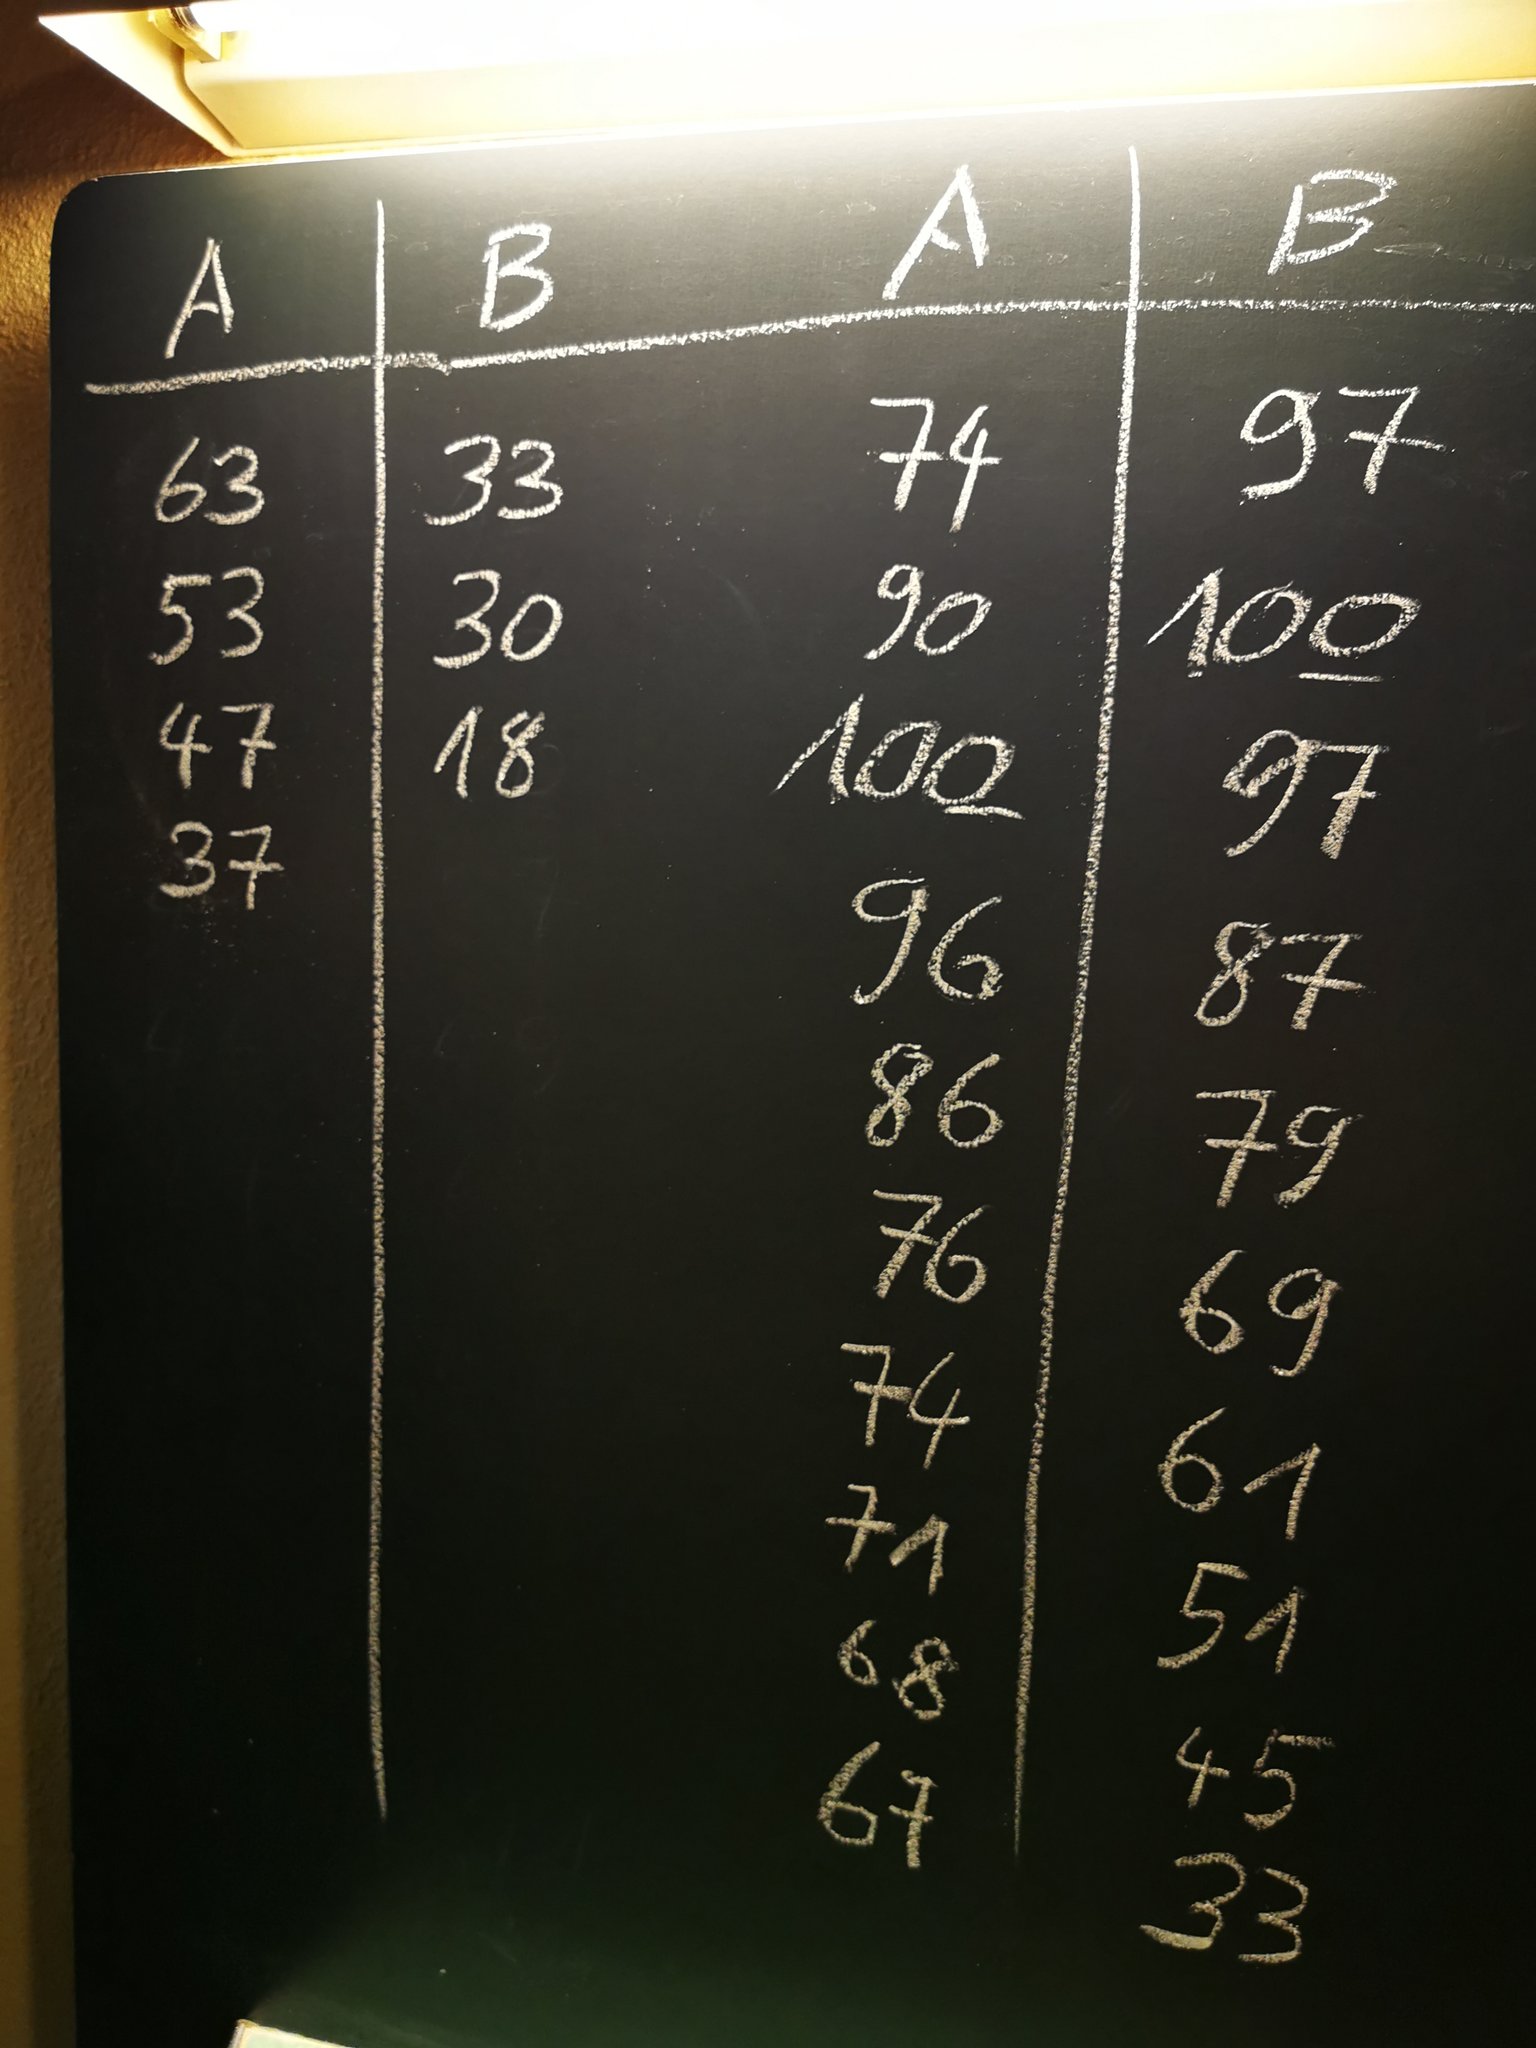 A B
63 33
53 30
47 18
37
A B
74 97
90 100
100 97
96 87
86 79
76 69
74 61
71 51
68 45
67 33